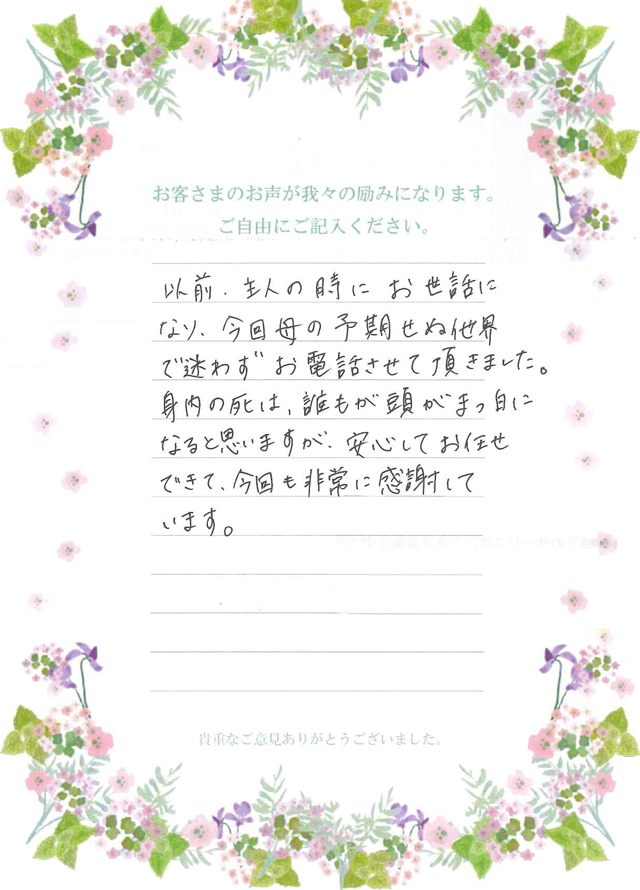 お客さまのお声が我々の励みになります。
ご自由にご記入ください。
以前、主人の時に お世話に
なり、今回母の予期せぬ他界
で迷わず お電話させて頂きました。
身内の死は、誰もが頭がまっ白に
なると思いますが、安心してお任せ
できて、今回も非常に感謝して
います。
貴重なご意見ありがとうございました。